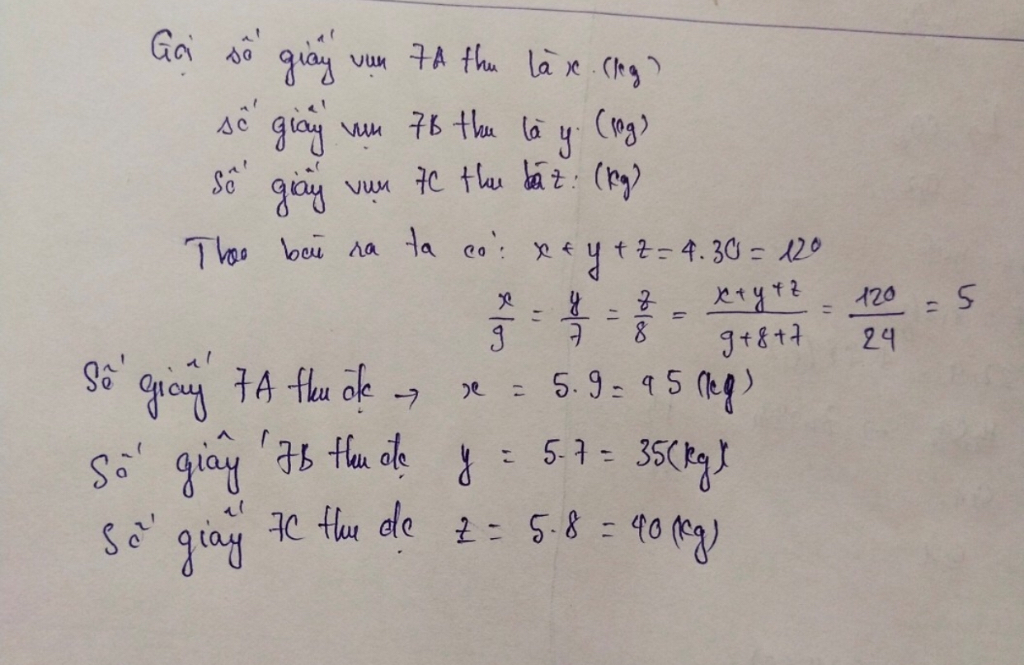 Gọi số giấy vụn 7A thu là x (kg)
số giấy vụn 7B thu là y (kg)
Số giấy vụn 7C thu là z: (kg)
Theo bài ra ta có: x + y + z = 4.30 = 120
x/9 = y/7 = z/8 = x+y+z/9+8+7 = 120/24 = 5
Số giấy 7A thu đc → x = 5.9 = 45 (kg)
Số giấy 7B thu đc y = 5.7 = 35(kg)
Số giấy 7C thu đc z = 5.8 = 40 (kg)